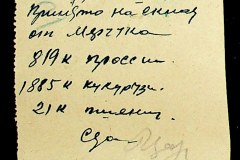 Принято на склад
от Марчука
819 к просси.
1885 к кукурузы.
21 к пшениц.
Сдал